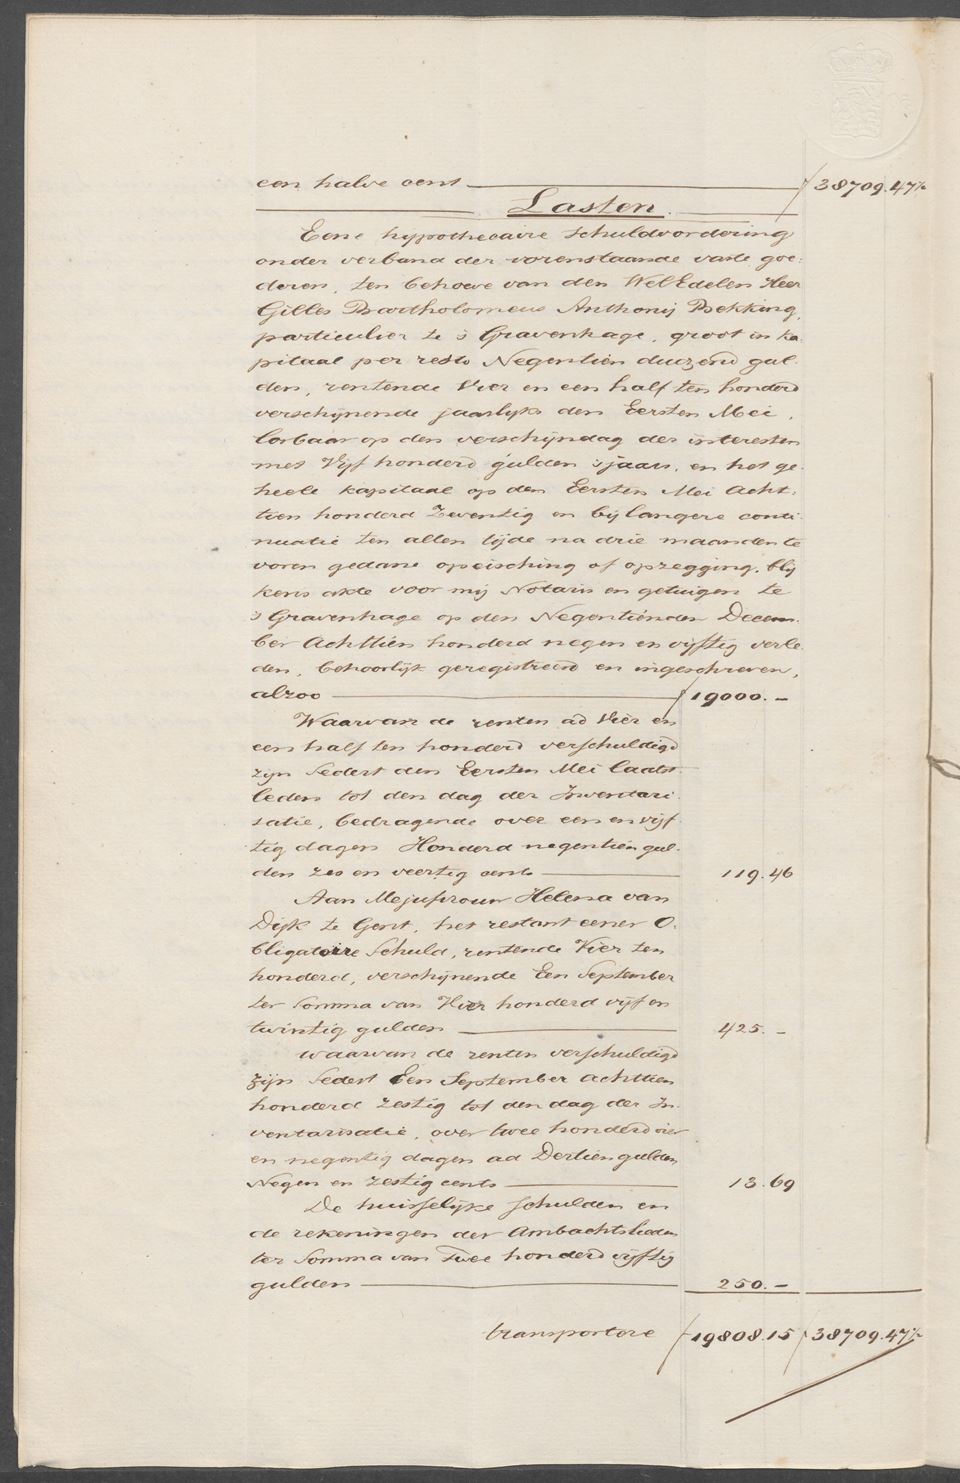 een halve cent ƒ 38709.47½
Lasten.
Eene hypothecaire schuldvordering
onder verband der vorenstaande vaste goe-
deren, ten behoeve van den WelEdelen Heer
Gilles Bartholomeus Anthonij Bekking,
particulier te 's Gravenhage, groot in ka-
pitaal per resto Negentien duizend gul-
den, rentende Vier en een half ten honderd
verschijnende jaarlijks den Eersten Mei,
losbaar op den verschijndag der interesten
met Vijf honderd gulden 's jaars, en het ge-
heele kapitaal op den Eersten Mei Acht-
tien honderd Zeventig en bij langere conti-
nuatie ten allen tijde na drie maanden te
voren gedane opeisching of opzegging, blij
kens akte voor mij Notaris en getuigen te
's Gravenhage op den Negentienden Decem-
ber Achttien honderd negen en vijftig verle-
den, behoorlijk geregistreerd en ingeschreven,
alzoo ƒ 19000.-
Waarvan de renten ad Vier en
een half ten honderd verschuldigd
zijn sedert den Eersten Mei laatst-
leden tot den dag der Inventari-
satie, bedragende over een en vijf-
tig dagen Honderd negentien gul-
den zes en veertig cents 119.46
Aan Mejufvrouw Helena van
Dijk te Gent, het restant eener O-
bligatoire Schuld, rentende Vier ten
honderd, verschijnende Een September
ter Somma van Vier honderd vijf en
twintig gulden 425.-
waarvan de renten verschuldigd
zijn sedert Een September achttien
honderd zestig tot den dag der In-
ventarisatie, over twee honderd vier
en negentig dagen ad Dertien gulden
Negen en zestig cents 13.69
De huisselijke schulden en
de rekeningen der Ambachtslieden
ter Somma van Twee honderd vijftig
gulden 250.-
transportere ƒ 19808.15 ƒ 38709.47½